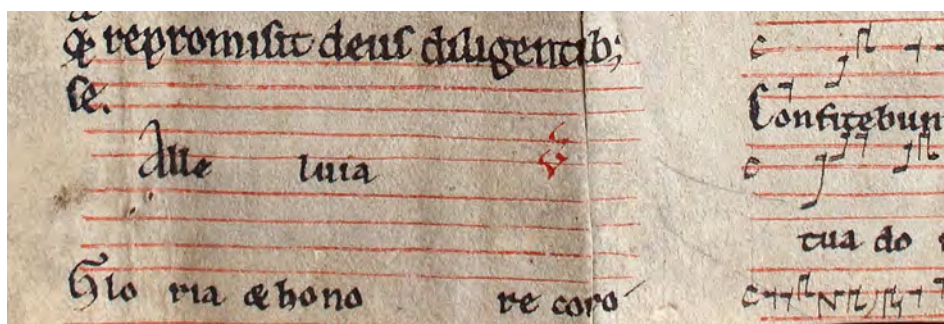 ꝙ repromisit deus diligentib;
se.
Alle luia ℣
Glo ria & hono re coro
Confitebun
tua do